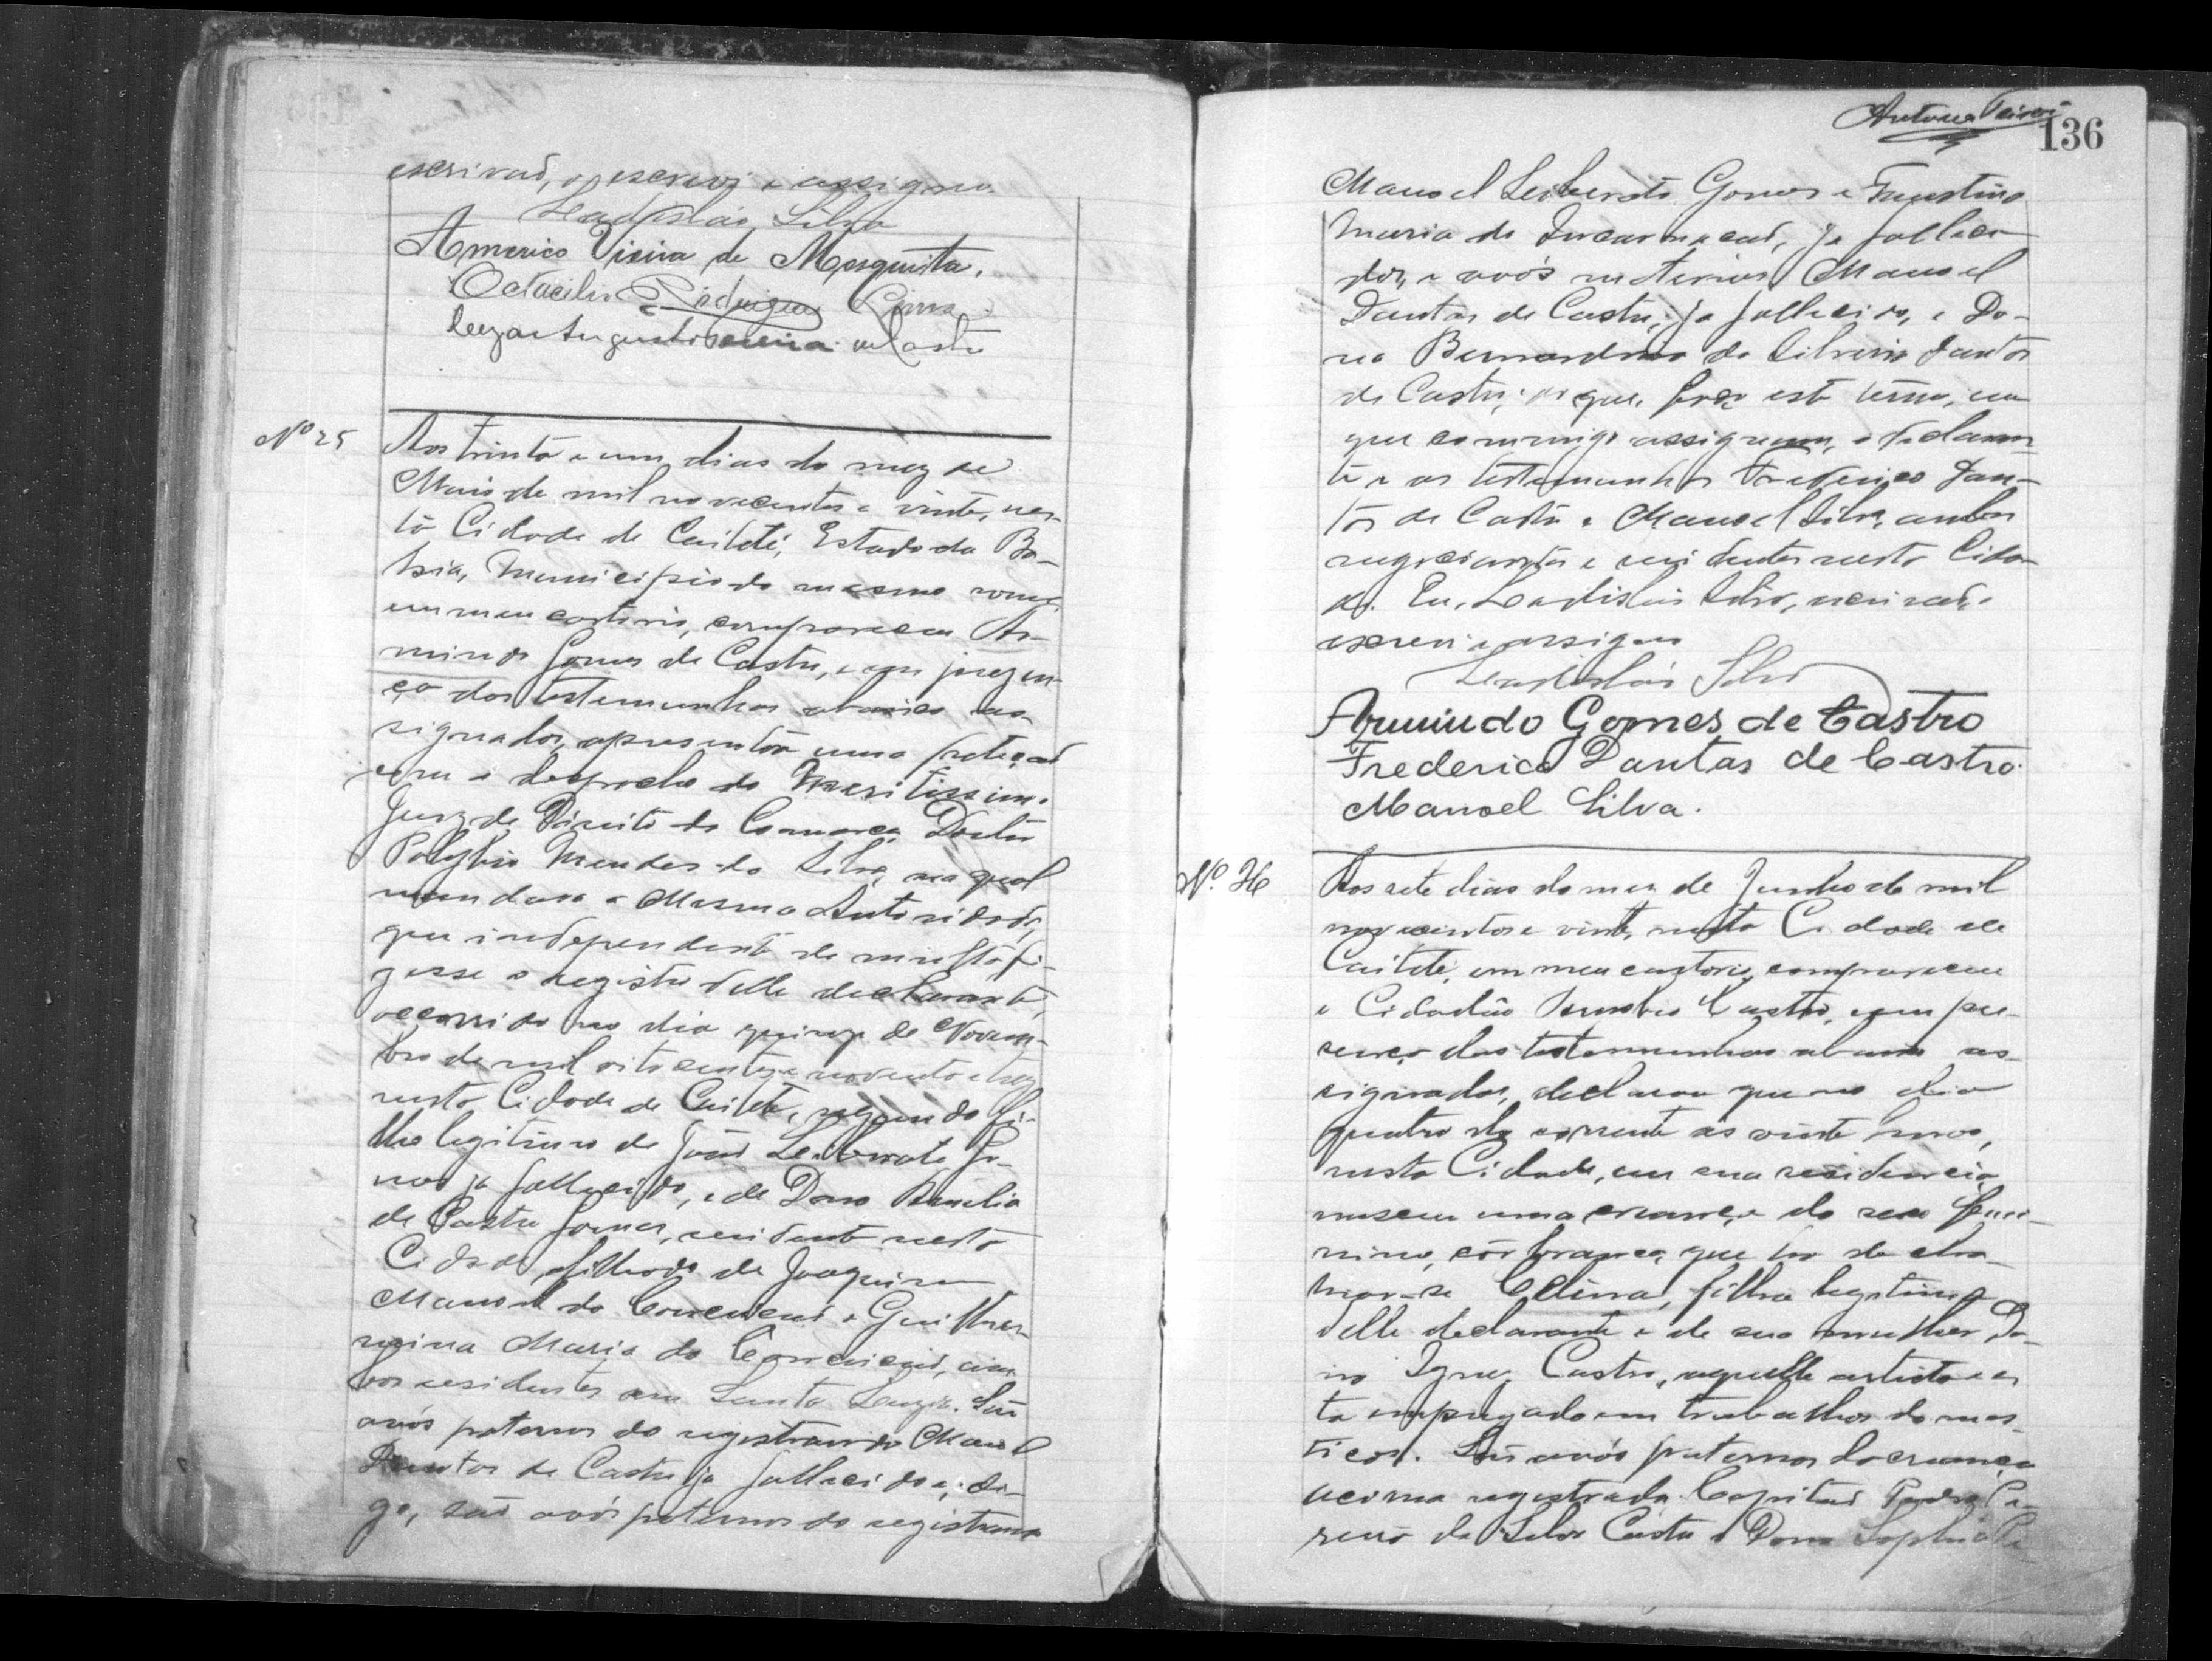 escrivaõ, o escrevi e assigno
Ladisláo Silva
Americo Vieira de Mesquita.
Octacilio Rodrigues Lima
Cezar Augusto de Castro
Nº 25
Aos trinta e um dias do mez de
Maio de mil novecentos e vinte, nes-
ta Cidade de Caiteté, Estado da Ba-
hia, Municipio do mesmo nome,
em meu cartorio, compareceu Ar-
mindo Gomes de Castro, e em prezen-
ça das testemunhas abaixo as-
signadas, apresentou uma petiçaõ
com o despacho do Meritissimo
Juiz de Direito da Comarca Doutor
Polybio Mendes da Silva, na qual
mandava a Mesma Autoridade,
que independente de multa, fi-
zesse o registro delle declarante,
occorrido no dia quinze de Novem-
bro de mil oitocentos e noventa e trez
nesta Cidade de Caiteté, segundo fi-
lho legitimo de João Leiberato Go-
mes ja fallecido, e de Dona Amelia
de Castro Gomes, residente nesta
Cidade, afilhado de Joaquim
Manoel da Conceicaõ e Guilher-
mina Maria da Conceicaõ, am-
bos residentes em Santa Luzia. Saõ
avós paternos do registrando Manoel
Dantas de Castro ja fallecido e, di-
go, saõ avós paternos do registrando
136
Manoel Leiberato Gomes e Faustina
Maria da Incarnacaõ, ja falleci-
dos, e avós maternos Manoel
Dantas de Castro, ja fallecido, e Do-
na Bernardina da Silveira Dantas
de Castro; do que, faço este termo, em
que commigo assignam, o declaran-
te e as testemunhas Frederico Dan-
tas de Castro e Manoel Silva, ambos
negociantes e residentes nesta Cida-
de. Eu, Ladislaú Silva, escrivaõ, o
escrevi e assigno
Ladisláo Silva
Armindo Gomes de Castro
Frederico Dantas de Castro.
Manoel Silva.
Nº. 26
Aos sete dias do mez de Junho de mil
novecentos e vinte, nesta Cidade de
Caiteté, em meu cartorio, compareceu
o Cidadão Castro, em pre-
sença das testemunhas abaixo as-
signadas, declarou que no dia
quatro do corrente ás vinte horas,
nesta Cidade, em sua residencia,
nasceu uma creança do sexo femi-
nino, côr branca, que ha de cha-
mar-se Celina, filha legitima
delle declarante e de sua mulher Do-
na Ignez Castro, aquelle artista e es-
ta empregada em trabalhos domes-
ticos. Saõ avós paternos da creança
acima registrada Capitaõ Pedro
da Silva Castro e Dona Sophia